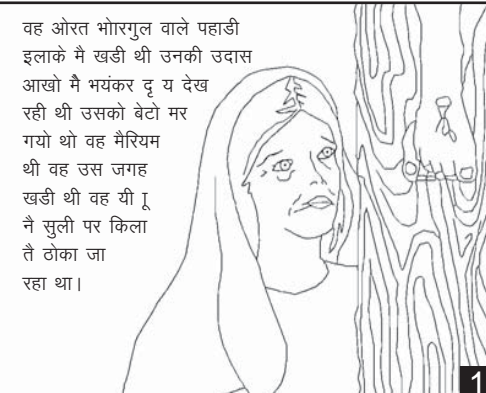 वह ओरत भोारगुल वाले पहाडी
इलाके मै खडी थी उनकी उदास
आखो मैे भयंकर दृ य देख
रही थी उसको बेटो मर
गयो थो वह मैरियम
थी वह उस जगह
खडी थी वह यी ाू
नै सुली पर किला
तै ठोका जा
रहा था।
1